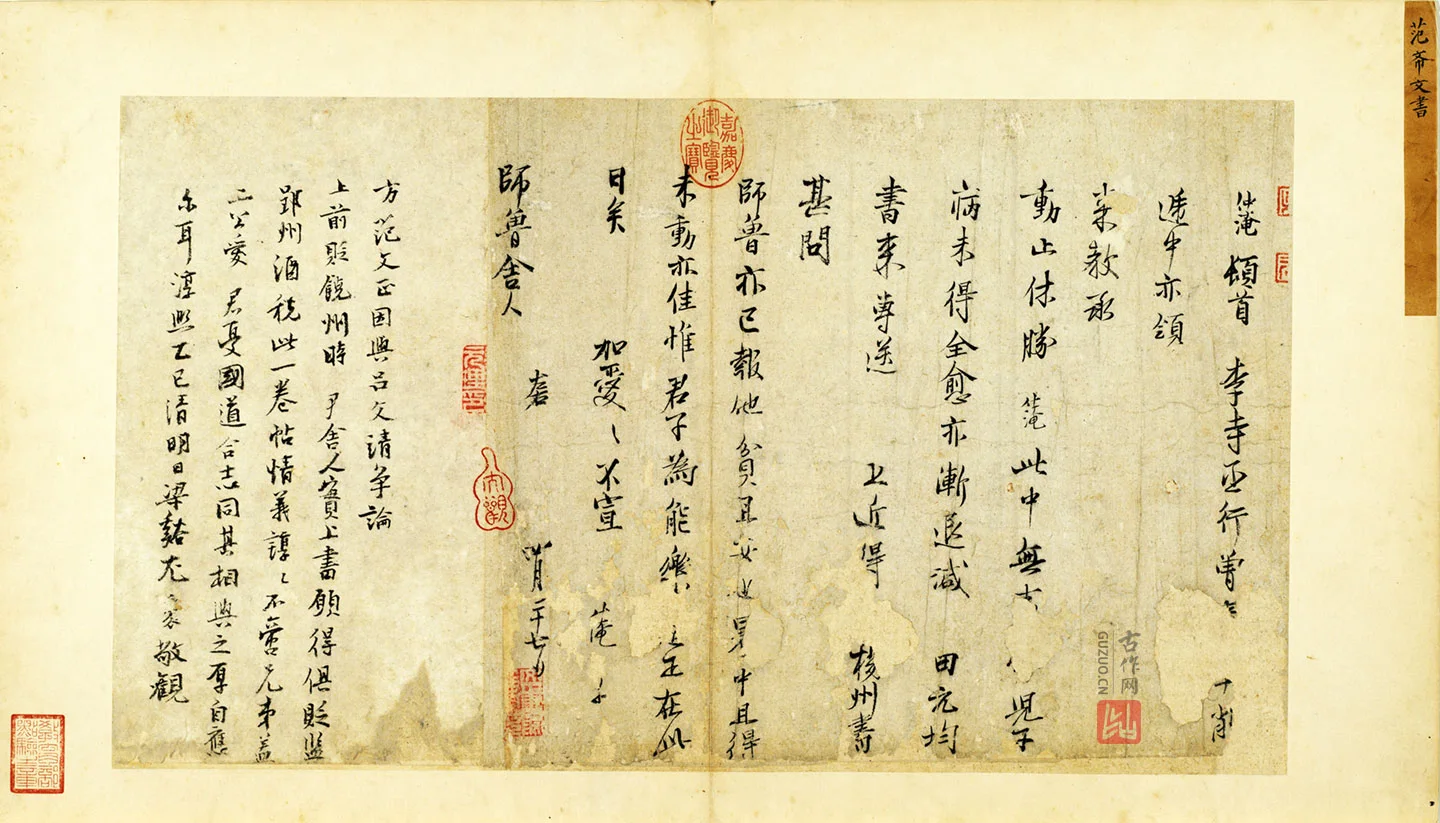 范斋文書
仲淹頓首 李寺丞行曾
遞中亦領
來教承
動止休勝 仲淹此中無 兒子
病未得全愈亦漸退減 田元均
書來專送 上近得 揆州書
甚問
師魯亦已報他貧且安也暑中且得
未動亦佳惟君子為能樂 正在此
日矣 加愛〻不宣 仲淹
師魯舍人 左右 四月二十七日
方范文正因與呂文靖爭論
上前貶饒州時 尹舍人實上書願得俱貶監
郢州酒稅此一卷帖情義諄〻不啻兄弟蓋
二公愛 君憂國道合志同其相與之厚自應
尓耳淳熙乙巳清明日梁谿尤袤敬觀
嘉慶御覽之寶
古作网
GUZUO.CN